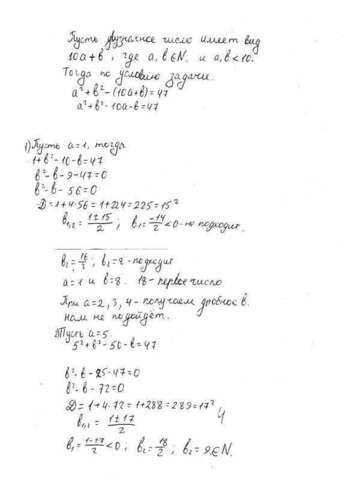 Пусть двузначное число имеет вид
10a+b, где a, b∈N, и a, b<10.
Тогда по условию задачи.
a²+b²-(10a+b)=47
a²+b²-10a-b=47
1) Пусть a=1, тогда
1+b²-10-b=47
b²-b-9-47=0
b²-b-56=0
D=1+4·56=1+224=225=15²
b₁,₂=(1±15)/2; b₁=-14/2<0-не подходит.
b₂=16/2; b₂=8-подходит
a=1 и b=8. 18-первое число
При a=2, 3, 4-получаем дробное b.
нам не подойдёт.
2) Пусть a=5.
5²+b²-50-b=47
b²-b-25-47=0
b²-b-72=0
D=1+4·72=1+288=289=17²
4
b₁,₂=(1±17)/2
b₁=(1-17)/2<0; b₂=18/2; b₂=9∈N.